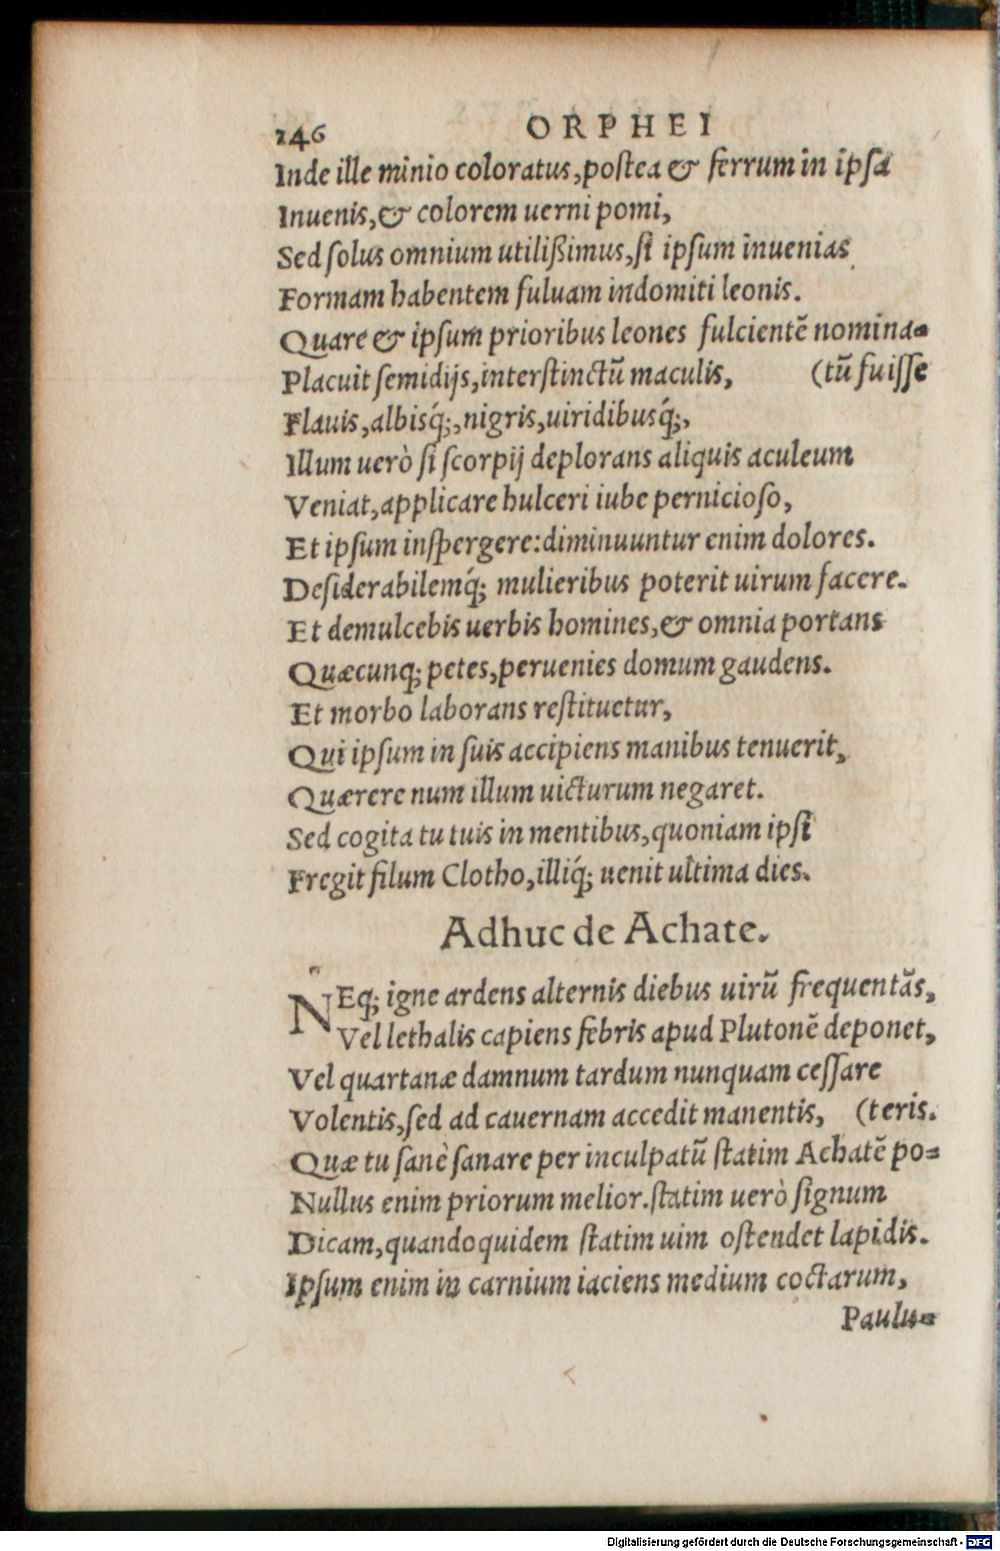 146 ORPHEI
Inde ille minio coloratus, postea & ferrum in ipsa
Inuenis, & colorem uerni pomi,
Sed solus omnium utilißimus, si ipsum inuenias
Formam habentem fuluam indomiti leonis.
Quare & ipsum prioribus leones fulcientē nomina-
Placuit semidijs, interstinctū maculis, (tū fuisse
Flauis, albisq́;, nigris, uiridibusq́;,
Illum uerò si scorpij deplorans aliquis aculeum
Veniat, applicare hulceri iube pernicioso,
Et ipsum inspergere: diminuuntur enim dolores.
Desiderabilemq́; mulieribus poterit uirum facere.
Et demulcebis uerbis homines, & omnia portans
Quæcunq; petes, peruenies domum gaudens.
Et morbo laborans restituetur,
Qui ipsum in suis accipiens manibus tenuerit,
Quærere num illum uicturum negaret.
Sed cogita tu tuis in mentibus, quoniam ipsi
Fregit filum Clotho, illiq́; uenit ultima dies.
Adhuc de Achate.
NEq; igne ardens alternis diebus uirū frequentās,
Vel lethalis capiens febris apud Plutonē deponet,
Vel quartanæ damnum tardum nunquam cessare
Volentis, sed ad cauernam accedit manentis, (teris.
Quæ tu sanè sanare per inculpatū statim Achatē po-
Nullus enim priorum melior. statim uerò signum
Dicam, quandoquidem statim uim ostendet lapidis.
Ipsum enim in carnium iaciens medium coctarum,
Paulu-
Digitalisierung gefördert durch die Deutsche Forschungsgemeinschaft - DFG